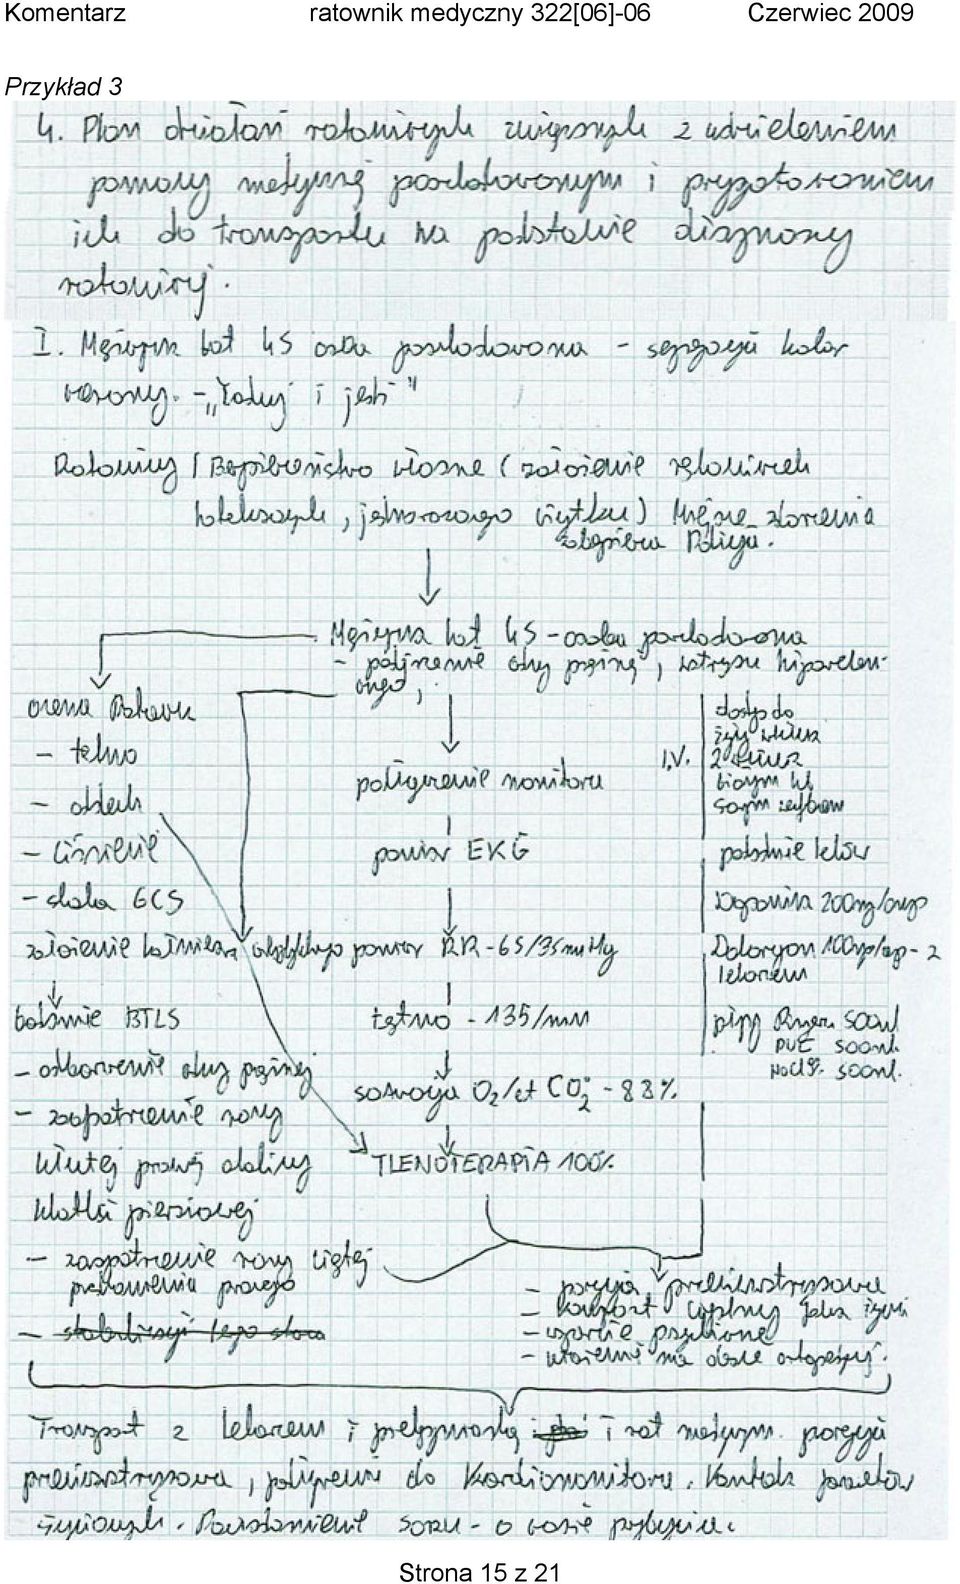 Komentarz ratownik medyczny 322[06]-06 Czerwiec 2009
Przykład 3
4. Plan działań ratowniczych związanych z udzieleniem
pomocy medycznej poszkodowanym i przygotowaniem
ich do transportu na podstawie diagnozy
ratowniczej.
I. Mężczyzna lat 45 osoba poszkodowana - segregacja kolor
czerwony. - „Ładuj i jedź"
Ratownicy / Bezpieczeństwo własne (założenie rękawiczek
lateksowych, jednorazowego użytku) Miejsce zdarzenia
zabezpiecza Policja.
Mężczyzna lat 45 - osoba poszkodowana
- podejrzenie odmy prężnej, wstrząsu hipowolem-
icznego,
ocena
- tętno
- oddech
- ciśnienie
- skala GCS
założenie kołnierza
badanie BTLS
- odbarczenie odmy prężnej
- zaopatrzenie rany
kłutej prawej okolicy
klatki piersiowej
- zaopatrzenie rany ciętej
przedramienia prawego
podłączenie monitora
pomiar EKG
pomiar RR - 65/35 mmHg
tętno - 135/min
saturacja O2/et CO2 - 88%
TLENOTERAPIA 100%
I.V.
dostęp do
żyły
2
podanie leków
Dopamina 200mg/amp
- z
lekarzem
płyny Ringera 500ml
PWE 500ml.
NaCl 9‰ 500ml.
- pozycja przeciwwstrząsowa
- komfort cieplny
- wsparcie psychiczne
- ułożenie na desce ortopedycznej.
Transport z lekarzem i pielęgniarką i rat medycznym. pozycja
przeciwwstrząsowa, podłączenie do kardiomonitora. Kontrola parametrów
życiowych. Powiadomienie SORU - o czasie przybycia.
Strona 15 z 21